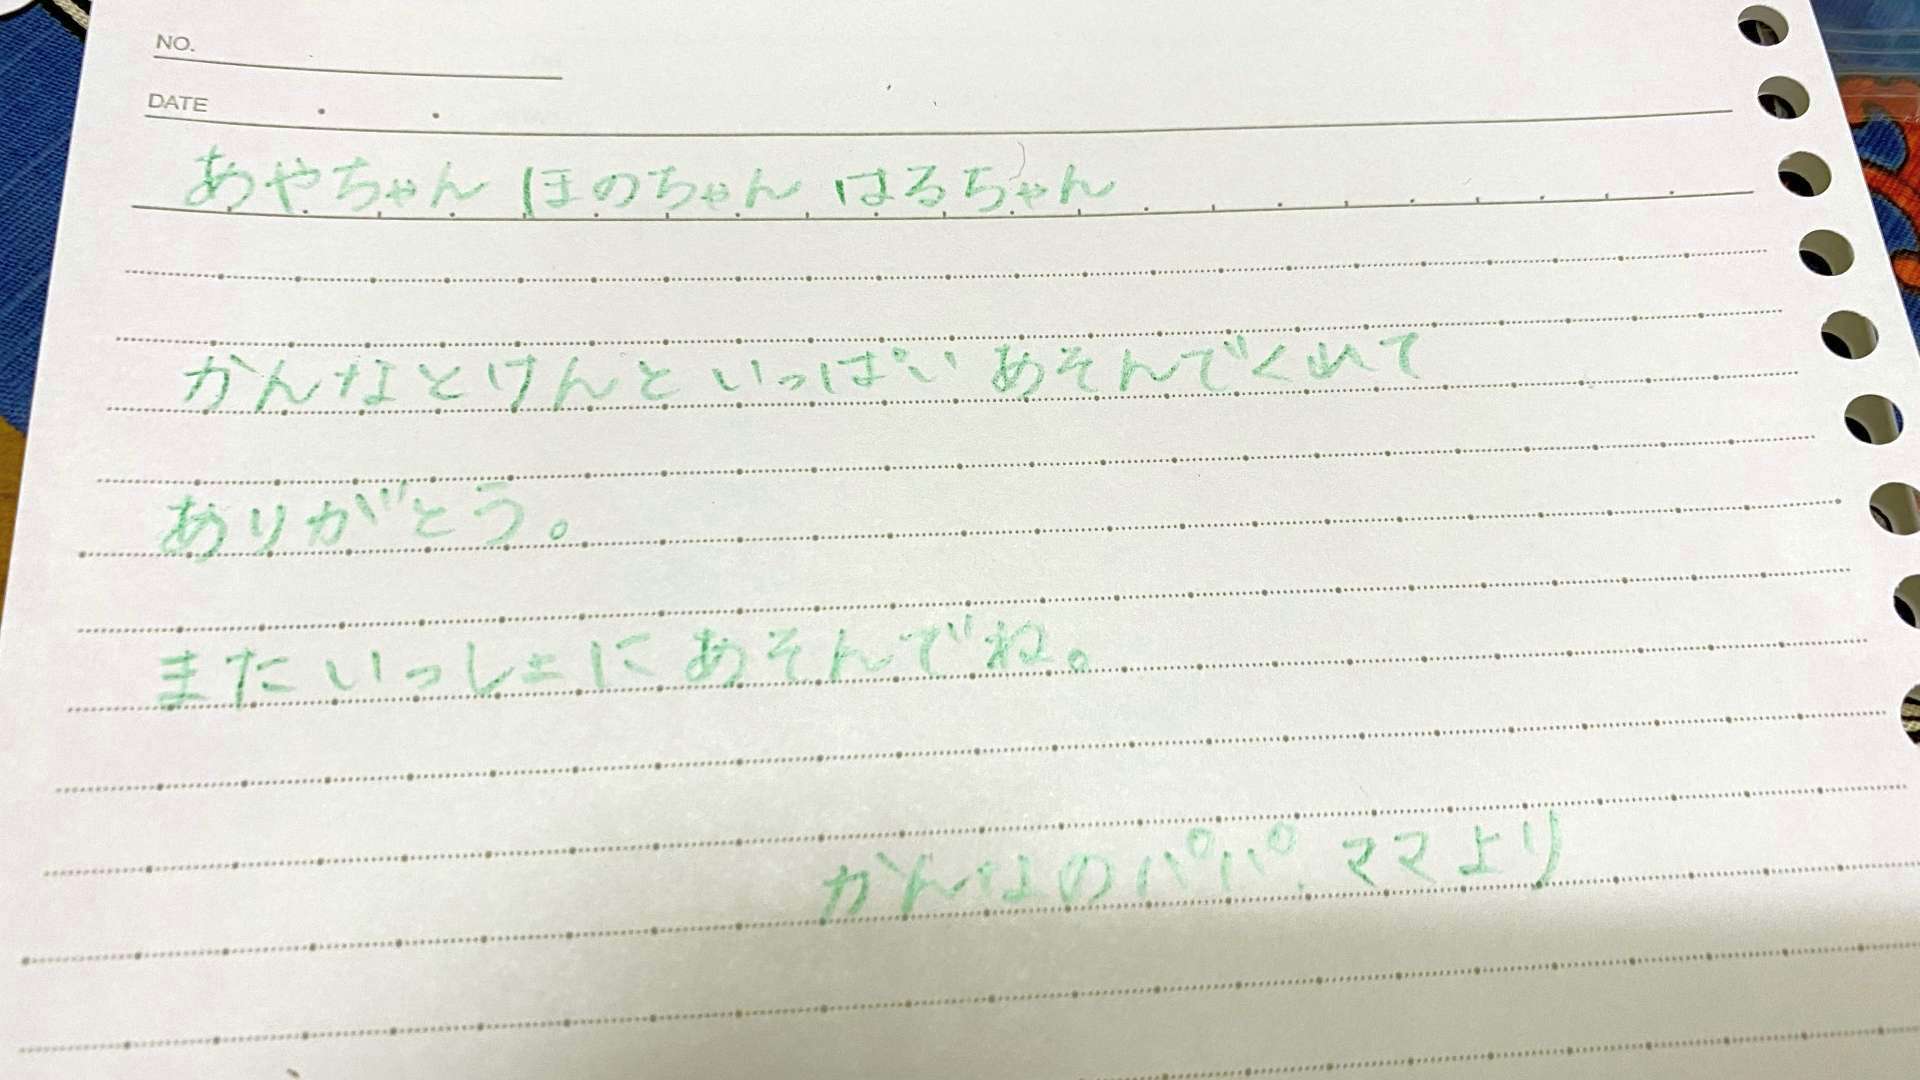 NO.
DATE
あやちゃん ほのちゃん はるちゃん
かんなとけんと いっぱい あそんでくれて
ありがとう。
また いっしょに あそんでね。
かんなのパパ、ママより